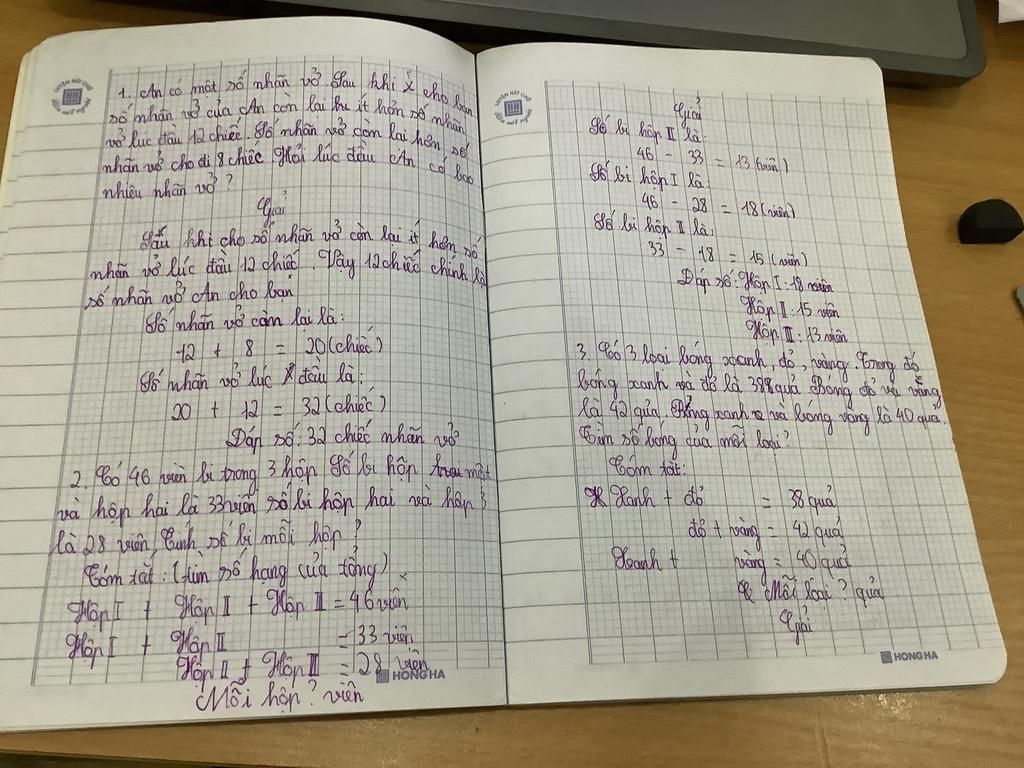 1. An có một số nhãn vở Sau khi cho bạn
số nhãn vở của An còn lại ít hơn số nhãn
vở lúc đầu 12 chiếc. Số nhãn vở còn lại hơn số
nhãn vở cho đi 8 chiếc Hỏi lúc đầu An có bao
nhiêu nhãn vở?
Giải
Sau khi cho số nhãn vở còn lại ít hơn số
nhãn vở lúc đầu 12 chiếc. Vậy 12 chiếc chính là
số nhãn vở An cho bạn
Số nhãn vở còn lại là:
12 + 8 = 20 (chiếc)
Số nhãn vở lúc đầu là:
20 + 12 = 32 (chiếc)
Đáp số: 32 chiếc nhãn vở
2. Có 46 viên bi trong 3 hộp Số bi hộp một
và hộp hai là 33 viên số bi hộp hai và hộp 3
là 28 viên, Tính số bi mỗi hộp?
Tóm tắt: (tìm số hạng của tổng)
Hộp I + Hộp II + Hộp III = 46 viên
Hộp I + Hộp II = 33 viên
Hộp II + Hộp III = 28 viên
Mỗi hộp? viên
HONG HA
Giải
Số bi hộp III là:
46 - 33 = 13 (viên)
Số bi hộp I là:
46 - 28 = 18 (viên)
Số bi hộp II là:
33 - 18 = 15 (viên)
Đáp số: Hộp I: 18 viên
Hộp II: 15 viên
Hộp III: 13 viên
3. Có 3 loại bóng xanh, đỏ, vàng. Trong đó
bóng xanh và đỏ là 38 quả Bóng đỏ và vàng
là 42 quả. Bóng xanh và bóng vàng là 40 quả.
Tìm số bóng của mỗi loại?
Tóm tắt:
Xanh + đỏ = 38 quả
đỏ + vàng = 42 quả
Xanh + vàng = 40 quả
Mỗi loại? quả
Giải
HONG HA